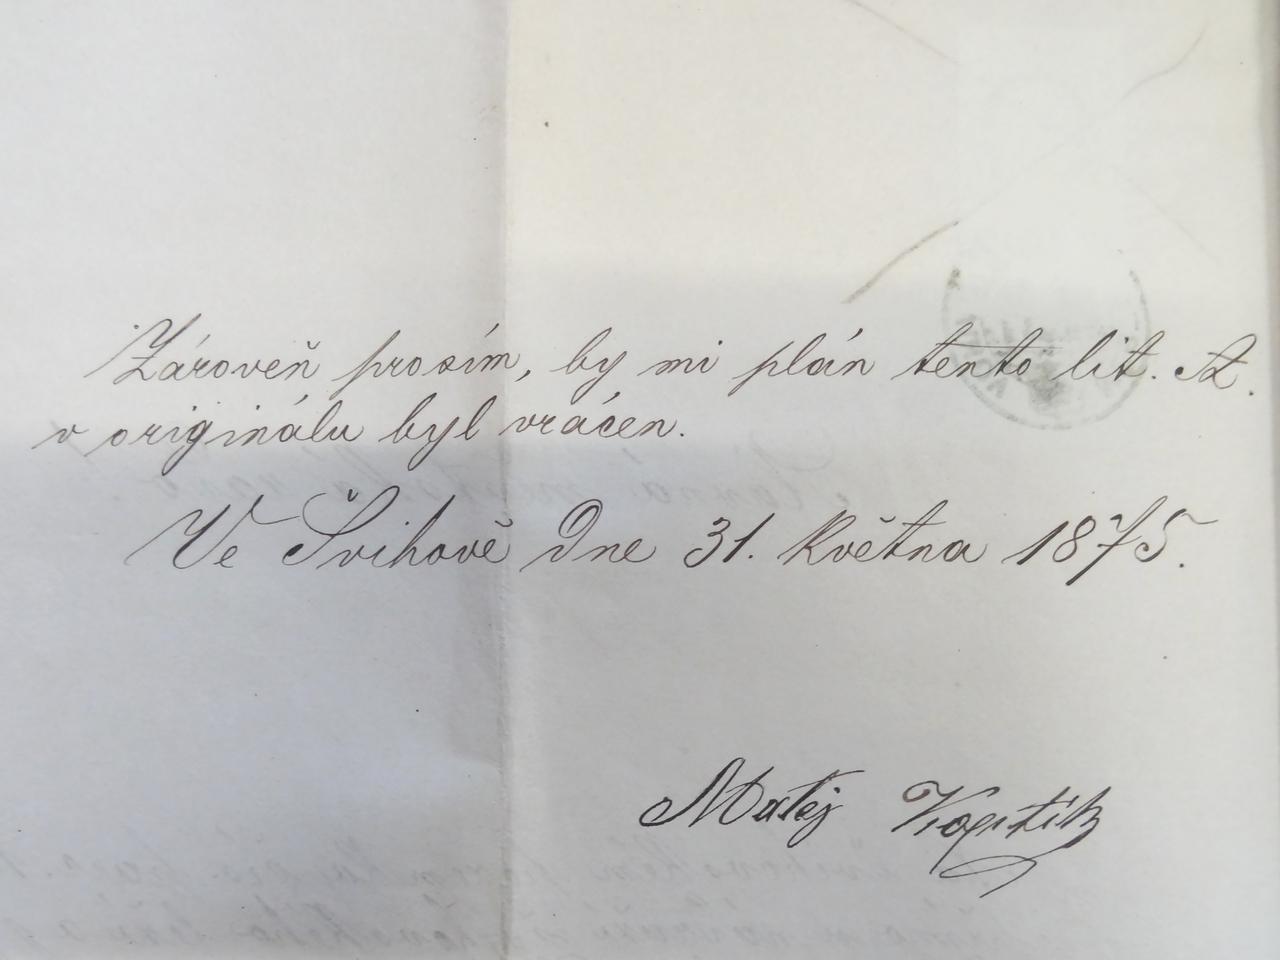 Zároveň prosím, by mi plán tento lit. A.
v originálu byl vrácen.
Ve Švihově dne 31. Května 1875.
Matěj